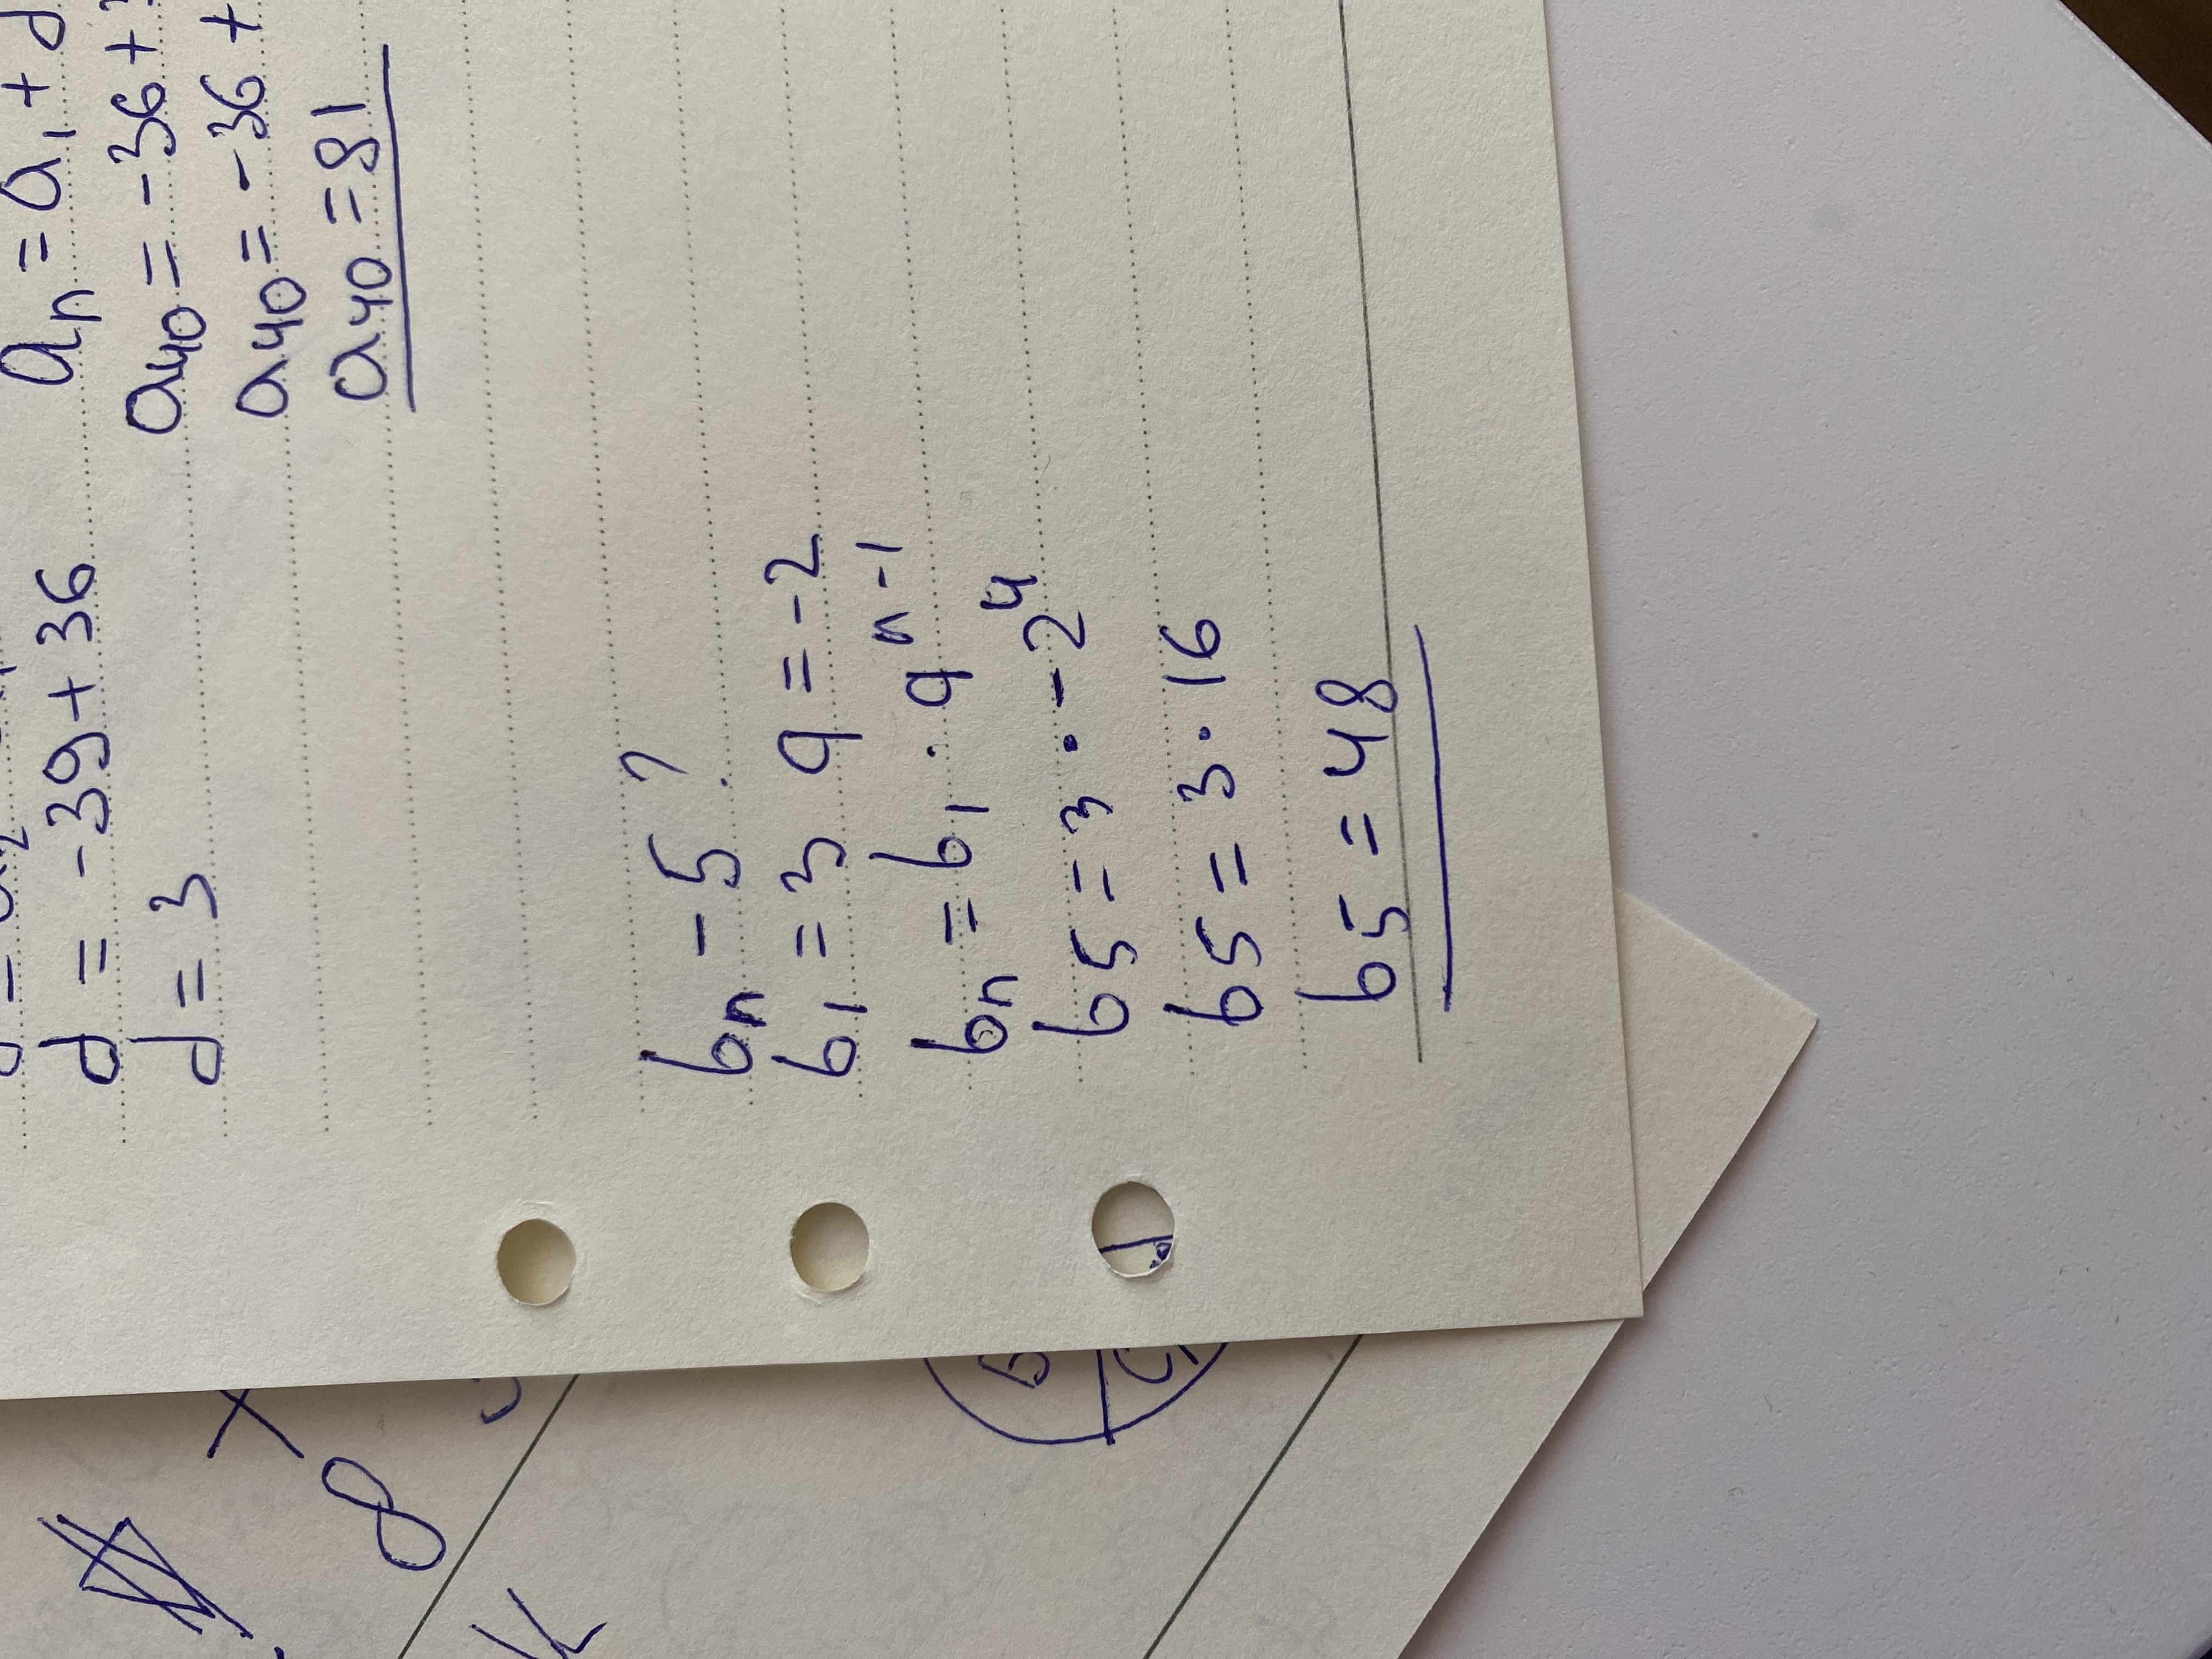 d = -39 + 36
d = 3
an = a1 + d
a40 = -36 +
a40 = -36 +
a40 = 81
bn - 5?
b1 = 3 q = -2
bn = b1 · q^n-1
b5 = 3 · -2^4
b5 = 3 · 16
b5 = 48
8